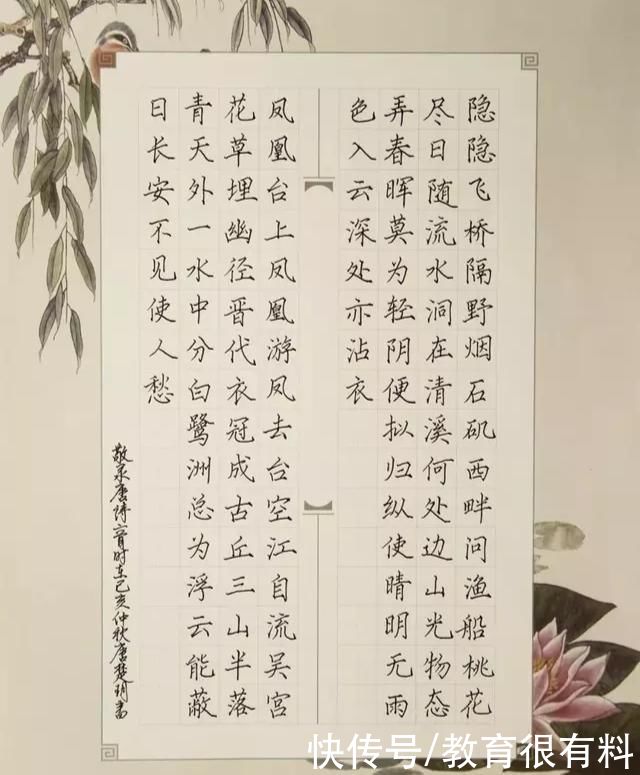 隐隐飞桥隔野烟石矶西畔问渔船桃花
尽日随流水洞在清溪何处边山光物态
弄春晖莫为轻阴便拟归纵使晴明无雨
色入云深处亦沾衣
凤凰台上凤凰游凤去台空江自流吴宫
花草埋幽径晋代衣冠成古丘三山半落
青天外一水中分白鹭洲总为浮云能蔽
日长安不见使人愁
敬录唐诗二首时在己亥仲秋唐楚玥书
快传号/教育很有料